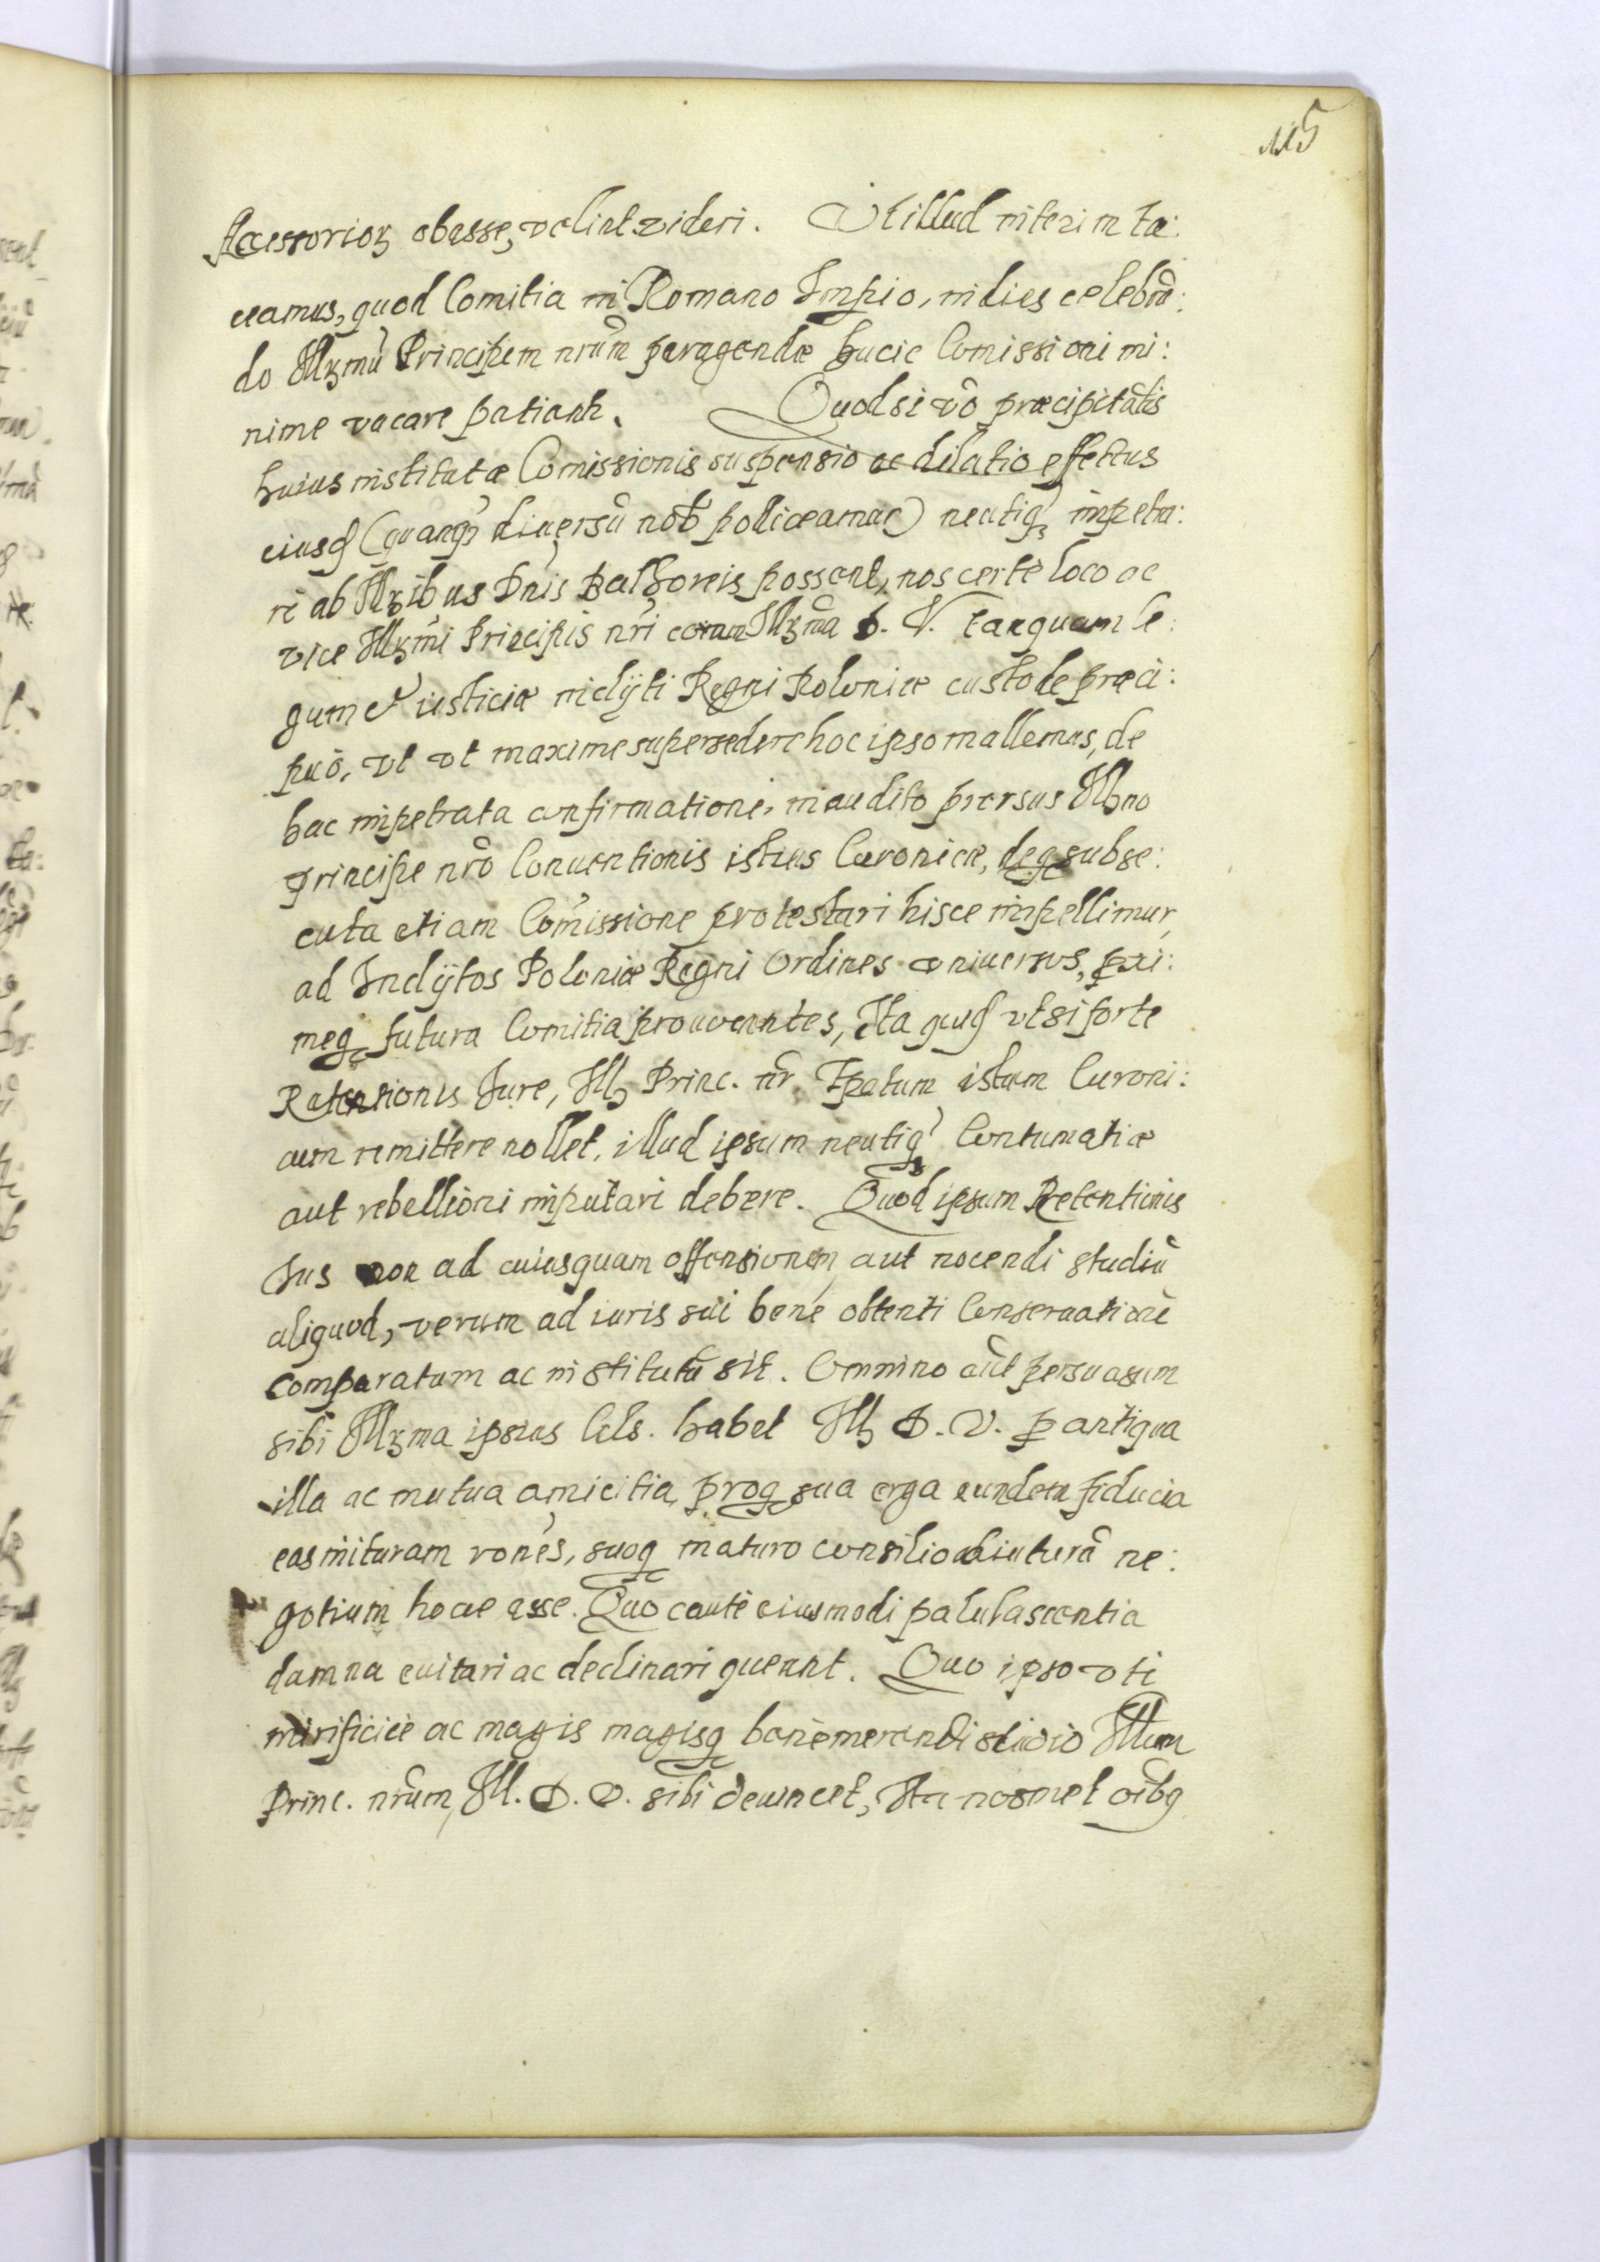 115
Accessorioꝝ obesse, velint videri. Vt illud interim ta:
ceamus, quod Comitia in Romano Impio, indies celebrã:
do Illꝫmũ Principem nrũm peragendæ huic Comissioni mi:
nime vacare patiantr. Quod si vò præcipitãtis
huius institutæ Comissionis suspensio ac dilatio effectus
eiusꝗ (quanq̃ diuersũ nob̃ policeamur) neutiq̃ impetra:
ri ab Illꝫibus Dñis Bathoreis possent, nos certè loco ac
vice Illꝫmi Principis nr̃i coram Illꝫma D. V. tanquam le:
gum et iusticiæ inclÿti Regni Poloniæ custode præci:
puo, vt vt maxime supersedere hoc ipso mallemus, de
hac impetrata confirmatione, inaudito prorsus Illꝫmo
principe nr̃o Conuentionis istius Curonicæ, deq subse:
cuta etiam Com̃issione protestari hisce impellimur,
ad Inclÿtos Poloniæ Regni Ordines vniuersos, pri:
meq futura Comitia prouocantes, Ita quiꝗ vt si forte
Retentionis Iure, Illꝫ Princ. nr̃ Epatum istum Curoni:
cum remittere nollet, illud ipsum neutiq̃ Contumatiæ
aut rebellioni imputari debere. Quod ipsum Retentionis
Ius non ad cuiusquam offensionem aut nocendi studiũ
aliquod, verum ad iuris sui bene obtenti Conseruationẽ
comparatum ac institutũ sit. Omnino aũt persuasum
sibi Illꝫma ipsius Cels. habet Illꝫ D. V. p antiqua
illa ac mutua amicitia, proq sua erga eundem fiducia
eas inituram roñes, suoq maturo consilio adiuturã ne:
gotium hocce esse. Quo cautè eiusmodi palulascentia
damna euitari ac declinari queant. Quo ipso vti
mirificiè ac magis magisq benèmerendi studio Illum
Princ. nrũm, Ill. D. V. sibi deuincet, Ita nosmet oĩbq